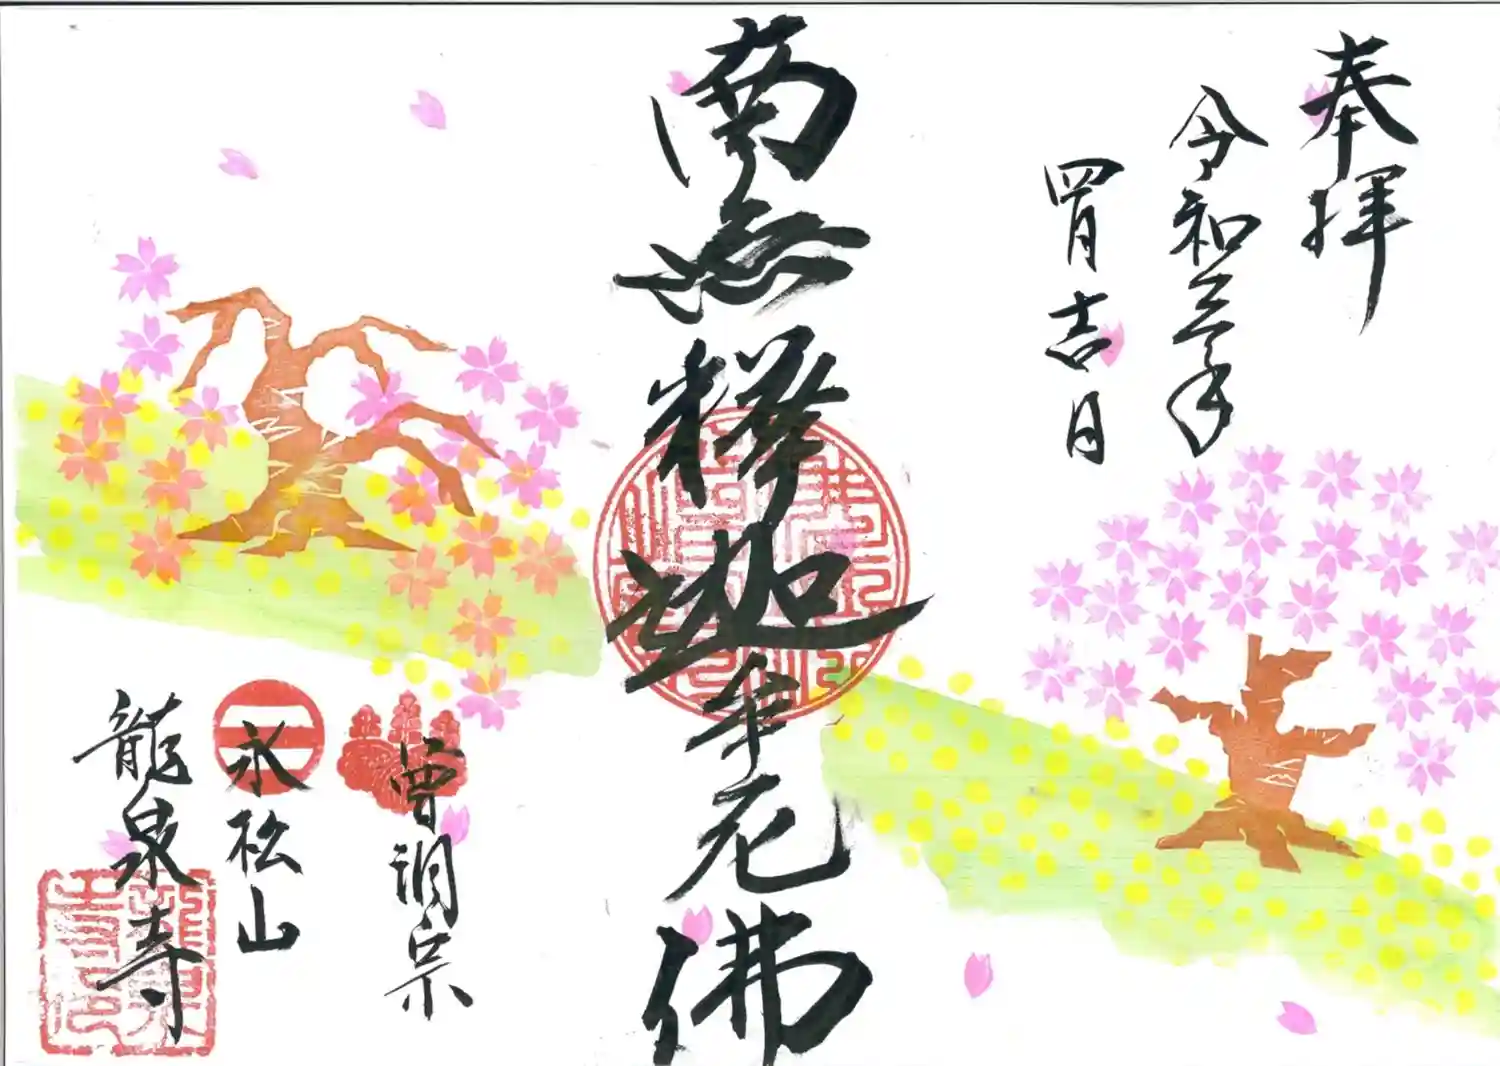 奉拝
令和三年
四月吉日
南無釋迦牟尼佛
曹洞宗
永松山
龍泉寺